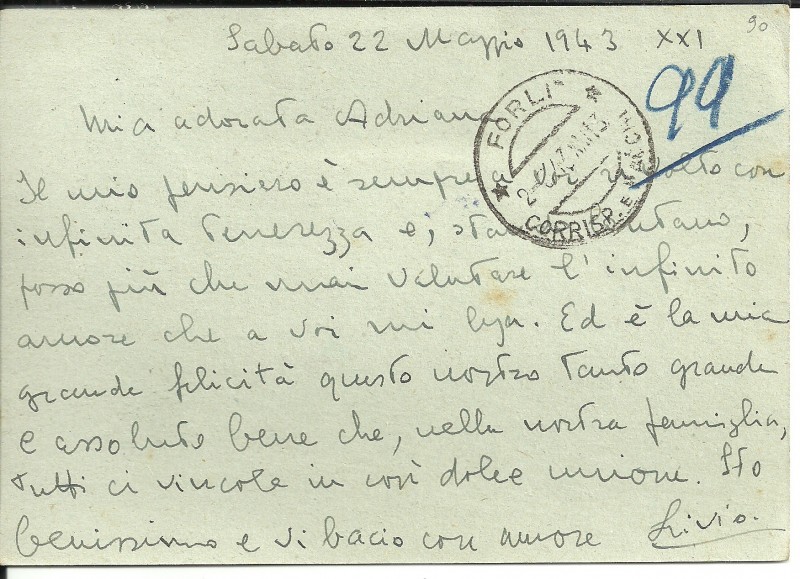 90
Sabato 22 Maggio 1943 XXI
99
Mia adorata Adriana
FORLI
CORRISP. E PACCHI
Il mio pensiero è sempre a voi rivolto con
infinita tenerezza e, stando lontano,
posso più che mai valutare l'infinito
amore che a voi mi lega. Ed è la mia
grande felicità questo nostro tanto grande
e assoluto bene che, nella nostra famiglia,
tutti ci vincola in così dolce unione. Sto
benissimo e vi bacio con amore Livio.